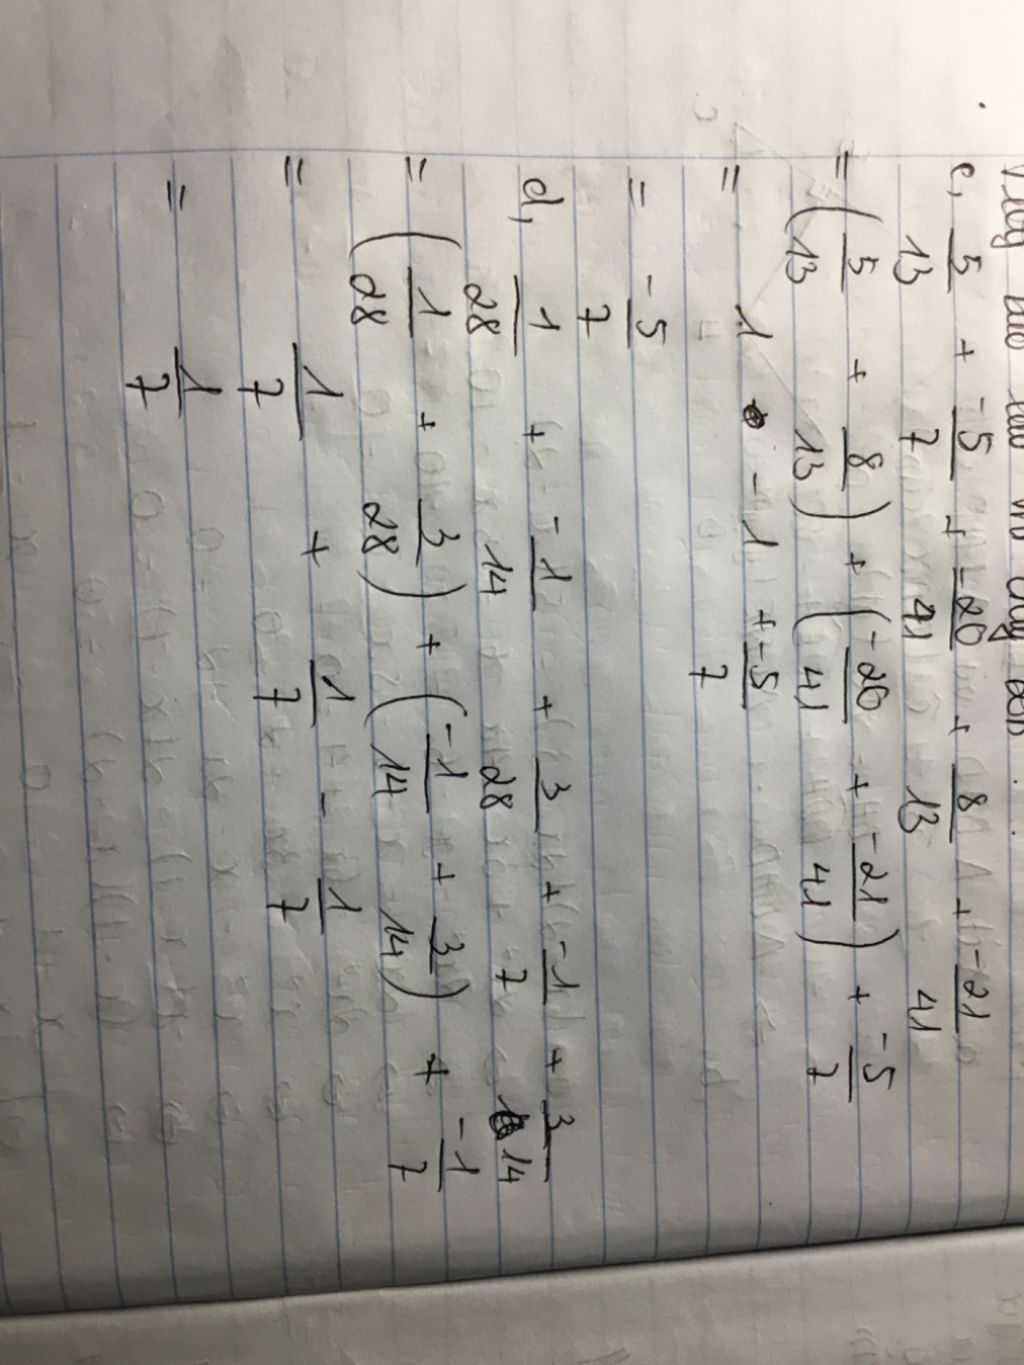 c, 5/13 + -5/7 + -20/41 + 8/13 + -21/41
= (5/13 + 8/13) + (-20/41 + -21/41) + -5/7
= 1 - 1 + -5/7
= -5/7
d, 1/28 + -1/14 + 3/28 + -1/7 + 3/14
= (1/28 + 3/28) + (-1/14 + 3/14) + -1/7
= 1/7 + 1/7 - 1/7
= 1/7